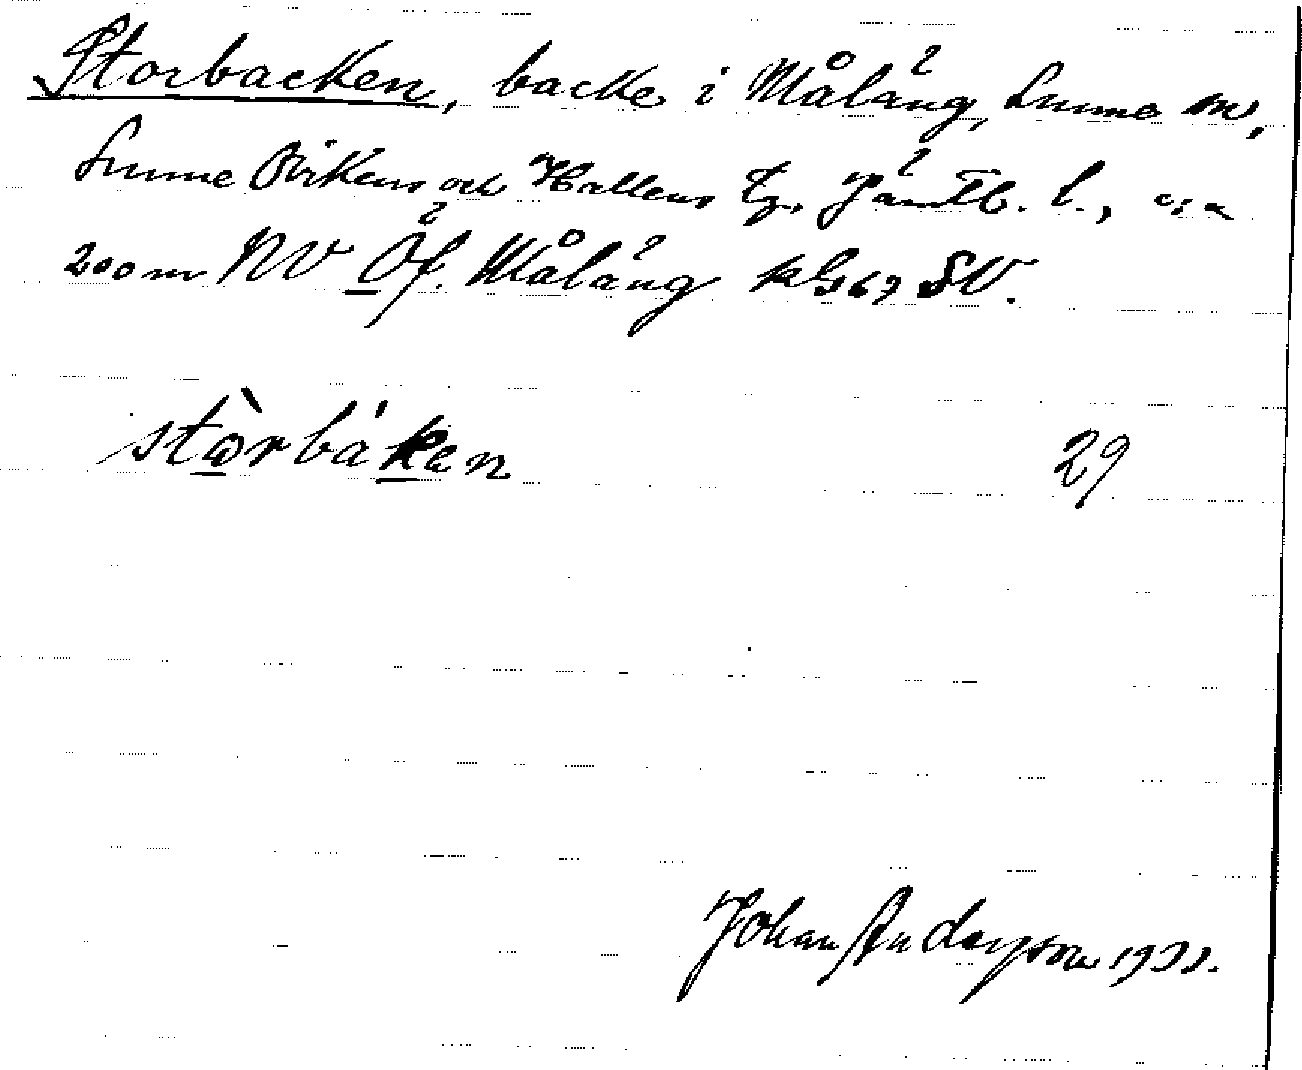 Storbacken, backe i Målång, Sunne sn,
Sunne Oviken och Hallens tg, Jämtl. l., ca
200 m NV Öf. Målång kg 67 SV.
stòrbáken 29
Johan Anderson 1933.